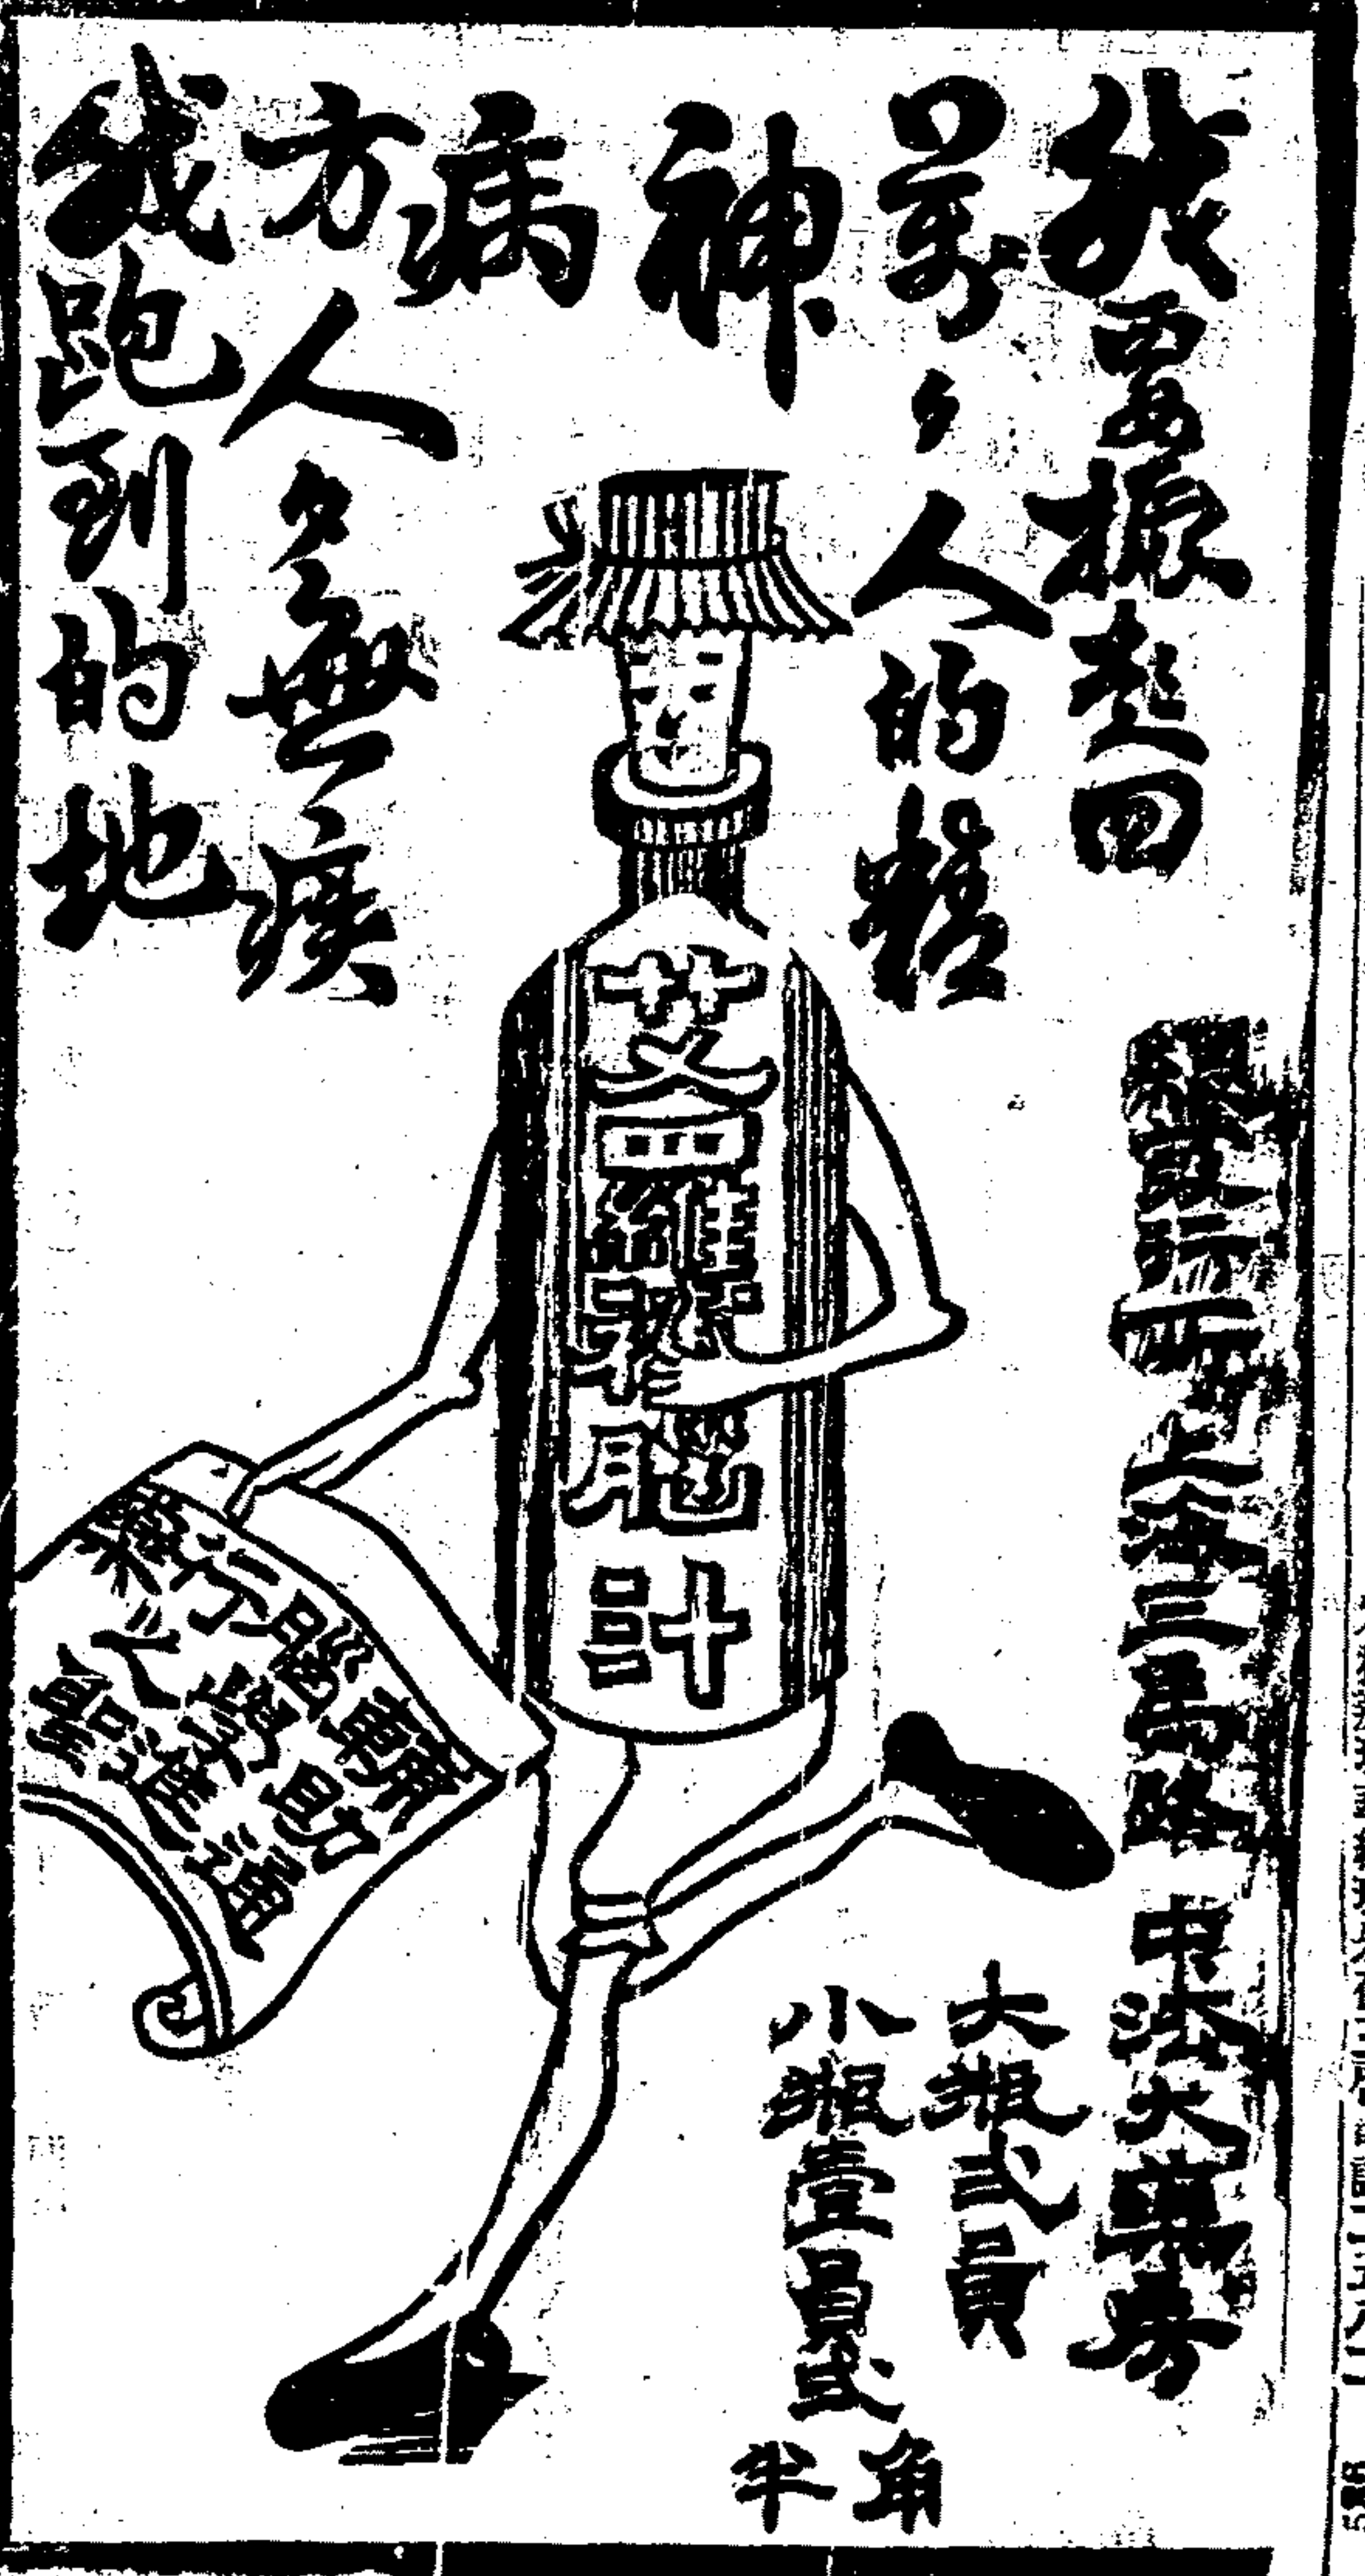 我要振起四
萬々人的精
神
我跑到的地
方人々無疾
病
艾羅補腦汁
輔助通
腦學進
總發行所上海三馬路中法大藥房
大瓶弍員
小瓶壹員弍角半